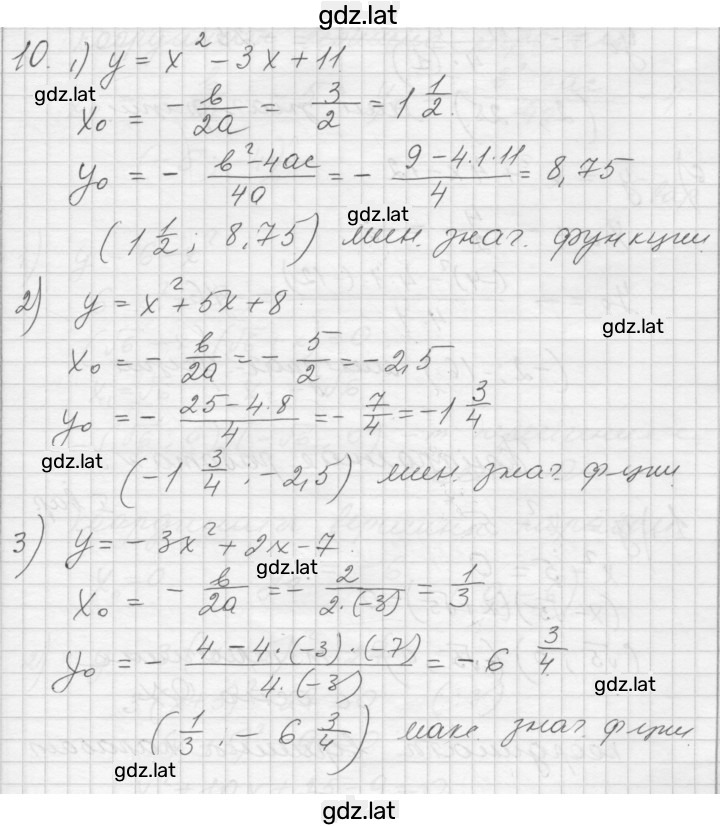 gdz.lat
10. 1) y = x² - 3x + 11
gdz.lat
x₀ = - b/2a = 3/2 = 1 1/2.
y₀ = - (b² - 4ac)/4a = - (9 - 4·1·11)/4 = 8,75
gdz.lat
(1 1/2; 8,75) мин. знач. функции.
2) y = x² + 5x + 8
gdz.lat
x₀ = - b/2a = - 5/2 = -2,5
y₀ = - (25 - 4·8)/4 = - 7/4 = -1 3/4
gdz.lat
(-1 3/4; -2,5) мин. знач. ф-ции.
3) y = -3x² + 2x - 7
gdz.lat
x₀ = - b/2a = - 2/(2·(-3)) = 1/3
y₀ = - (4 - 4·(-3)·(-7))/(4·(-3)) = -6 3/4
gdz.lat
(1/3; -6 3/4) макс. знач. ф-ции.
gdz.lat
gdz.lat